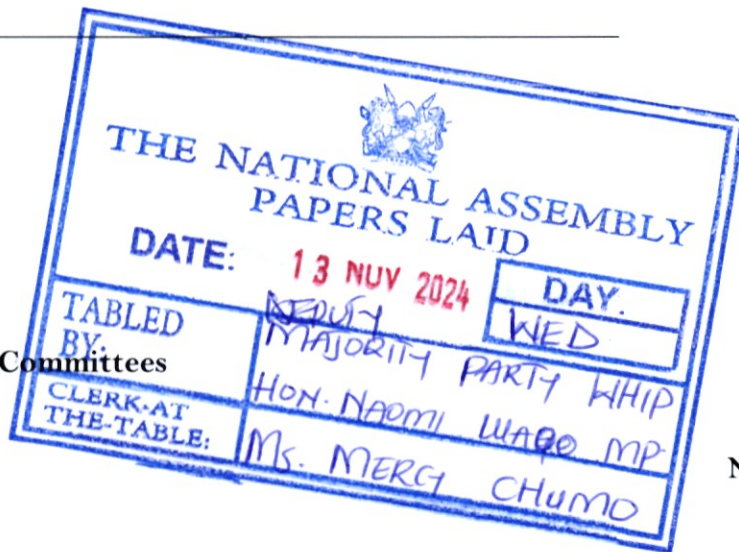 THE NATIONAL ASSEMBLY
PAPERS LAID
DATE: 13 NOV 2024
DAY.
WED
TABLED
BY:
DEPUTY
MAJORITY PARTY WHIP
HON. NAOMI WAQO MP
Committees
CLERK-AT
THE-TABLE:
Ms. MERCY CHUMO
N